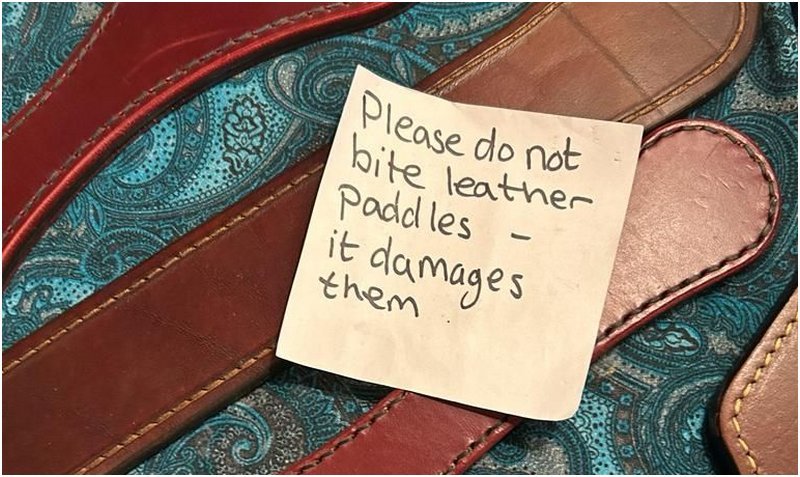 Please do not
bite leather
paddles -
it damages
them